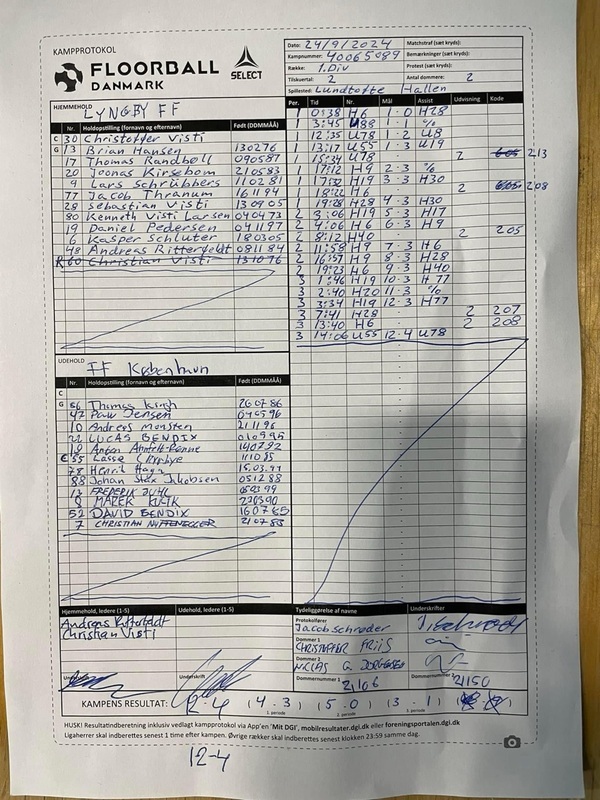 KAMPPROTOKOL
FLOORBALL
DANMARK
SELECT
Dato: 24/9/2024 Matchstraf (sæt kryds):
Kampnummer: 40065089 Bemærkninger (sæt kryds):
Række: 1. Div Protest (sæt kryds):
Tilskuertal: 2 Antal dommere: 2
Spillested: Lundtofte Hallen
HJEMMEHOLD LYNGBY FF
Nr. Holdopstilling (fornavn og efternavn) Født (DDMMÅÅ)
C 30 Christoffer Visti
G 13 Brian Hansen 130276
17 Thomas Randbøll 090587
20 Joonas Kirsebom 210583
9 Lars Schrübbers 110281
77 Jacob Thranum 161194
28 Sebastian Visti 130905
80 Kenneth Visti Larsen 040473
19 Daniel Pedersen 041197
6 Kasper Schluter 180305
48 Andreas Ritterfeldt 081184
R 60 Christian Visti 131076
Per. Tid Nr. Mål Assist Udvisning Kode
1 0:38 H6 1-0 H28
1 3:45 U88 1-1 %
1 12:35 U78 1-2 U8
1 13:17 U55 1-3 U19
1 15:34 U78 2 605 213
1 17:12 H9 2-3 %
1 17:30 H19 3-3 H30
1 18:22 H6 2 605 208
1 19:28 H28 4-3 H30
2 3:06 H19 5-3 H17
2 4:06 H6 6-3 H9
2 8:12 H40 2 205
2 11:58 H19 7-3 H6
2 16:57 H9 8-3 H28
2 19:23 H6 9-3 H40
3 1:46 H19 10-3 H77
3 2:40 H20 11-3 %
3 3:34 H19 12-3 H77
3 7:41 H28 2 207
3 13:40 H6 2 208
3 14:06 U55 12-4 U78
UDEHOLD FF København
Nr. Holdopstilling (fornavn og efternavn) Født (DDMMÅÅ)
C
G Thomas 260786
47 Paw Jensen
10 Andreas Monsten 211196
LUCAS BENDIX
Anton
C 55 Lasse
78 Henrik 15.03.
88 Johan Stax Jakobsen 051288
FREDERIK JUHL
MAREK
52 DAVID BENDIX 160785
7 CHRISTIAN 210788
Hjemmehold, ledere (1-5) Udehold, ledere (1-5)
Andreas Ritterfeldt
Christian Visti
Underskrift
Tydeliggørelse af navne Underskrifter
Protokolfører
Jacob Schrøder
Dommer 1
CHRISTOPHER FRIIS
Dommer 2
NICLAS G. JØRGENSEN
Dommernummer 1 21106 Dommernummer 2 21150
KAMPENS RESULTAT: 12-4 (4-3) (5-0) (3-1)
1. periode 2. periode 3. periode
HUSK! Resultatindberetning inklusiv vedlagt kampprotokol via App'en 'Mit DGI', mobilresultater.dgi.dk eller foreningsportalen.dgi.dk.
Ligaherrer skal indberettes senest 1 time efter kampen. Øvrige rækker skal indberettes senest klokken 23:59 samme dag.
12-4